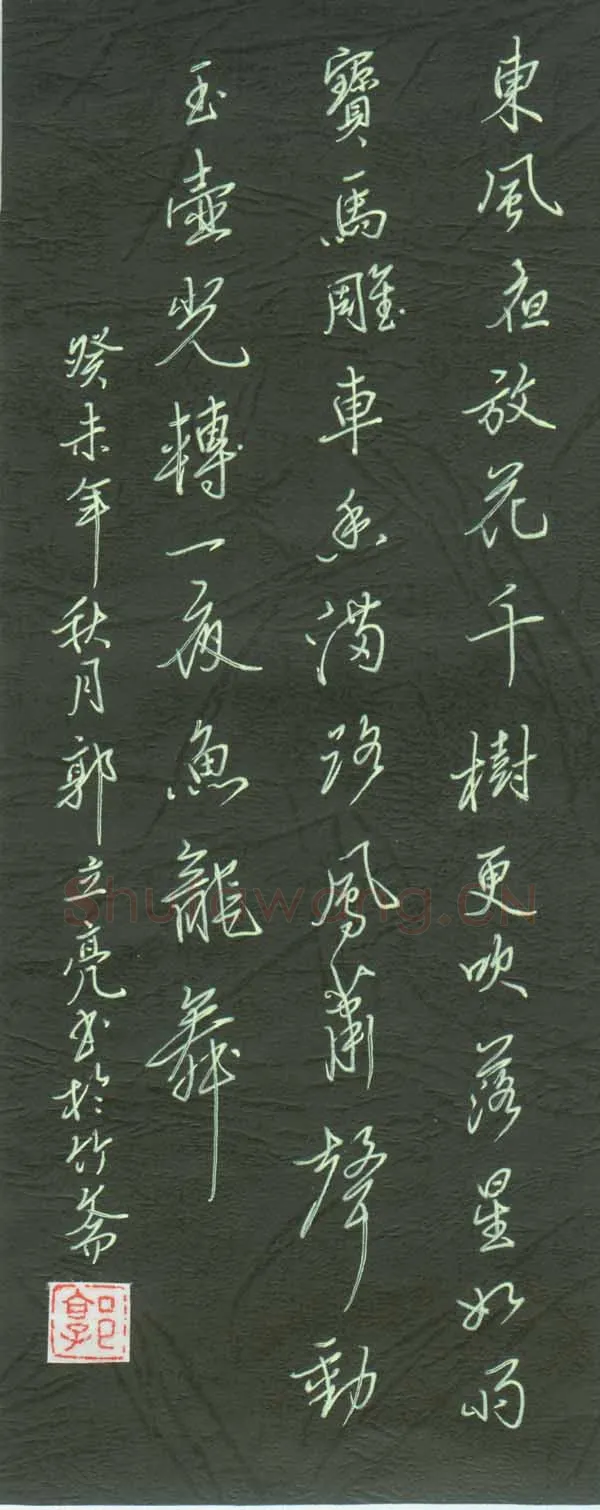 東風夜放花千樹更吹落星如雨
寶馬雕車香滿路鳳蕭聲動
玉壺光轉一夜魚龍舞
癸未年秋月郭立亮書於竹齋
郭